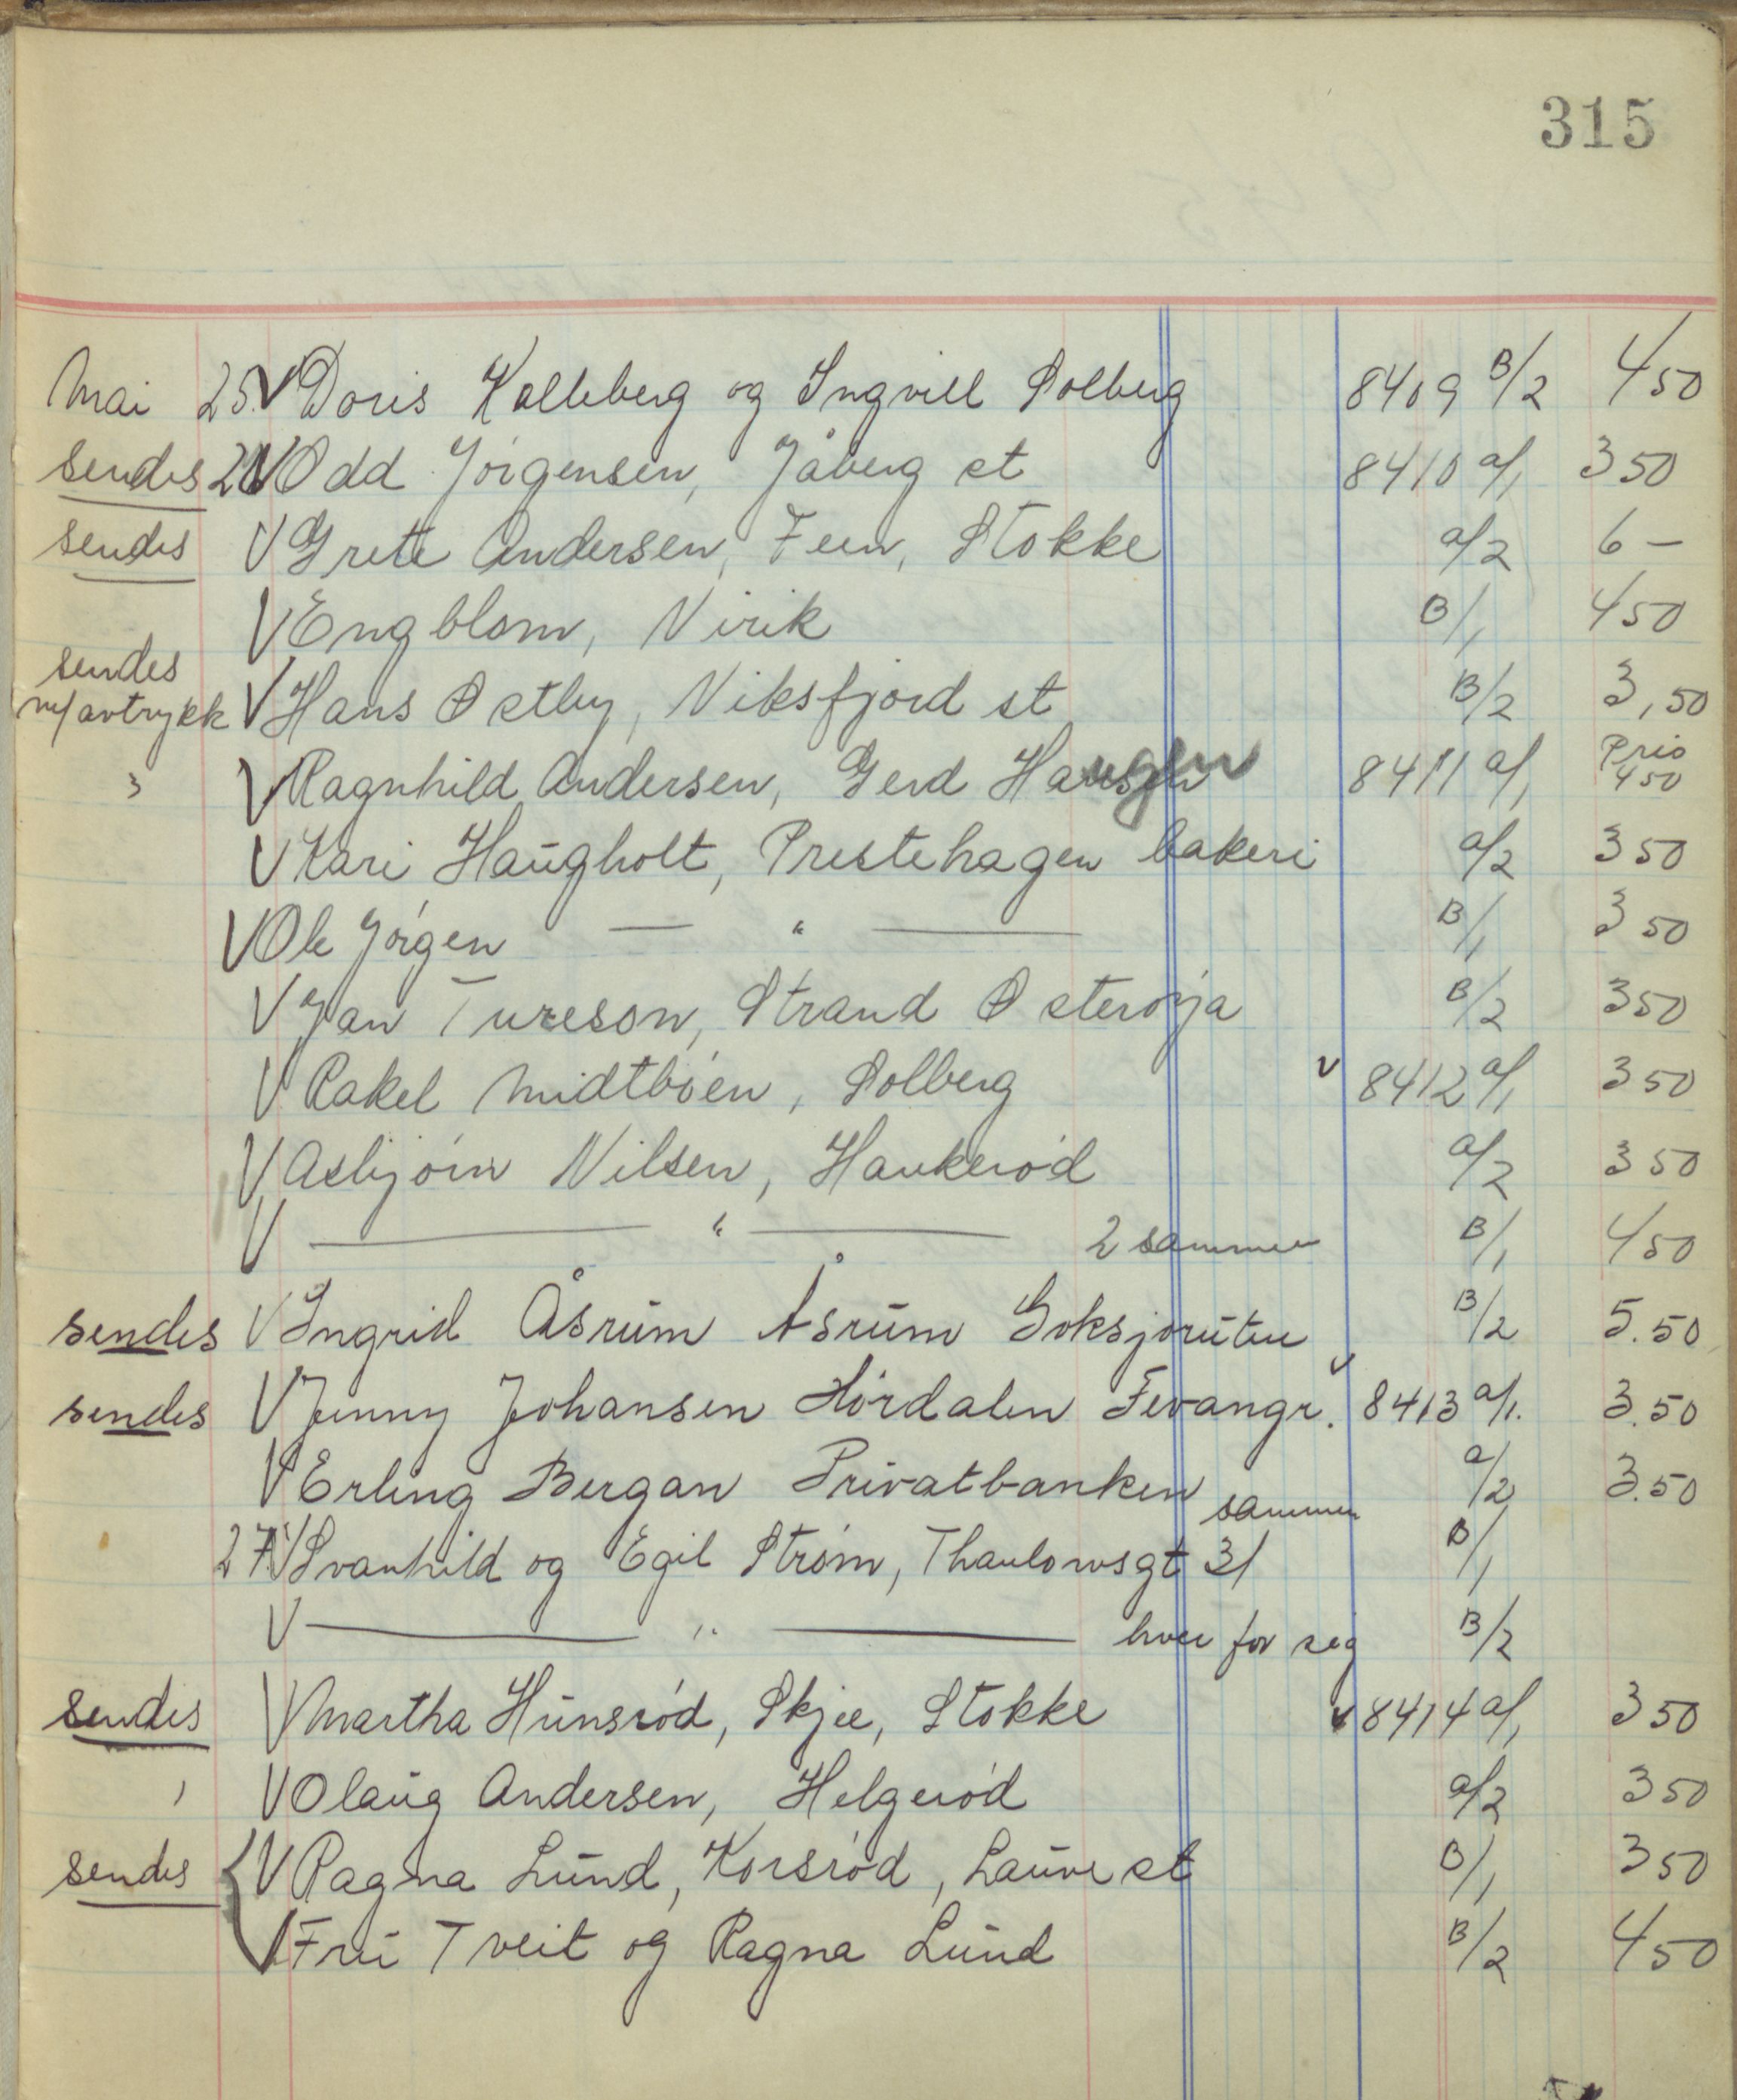 315
Mai 25. V Doris Kolleberg og Ingvill Solberg 8409 B/2 4 50
sendes 26 V Odd Jörgensen, Jåberg st 8410 a/1 3 50
sendes V Grete Andersen, Feen, Stokke a/2 6 —
V Engblom, Virik B/1 4 50
sendes
m/avtrykk V Hans Østby, Viksfjord st B/2 3,50
3 V Ragnhild Andersen, Gerd Haugen 8411 a/1 Pris 4 50
V Kari Haugholt, Prestehagen bakeri a/2 3 50
V Ole Jörgen — " — B/1 3 50
V Jan Tureson, Strand Østerøya B/2 3 50
V Rakel Midtböen, Solberg v 8412 a/1 3 50
V Asbjörn Nilsen, Haukeröd a/2 3 50
V — " — 2 sammen B/1 4 50
sendes V Ingrid Åsrum Åsrum Goksjøruten B/2 5.50
sendes V Jenny Johansen Hördalen Fevangr. v 8413 a/1. 3.50
V Erling Bergan Privatbanken a/2 3.50
27. V Svanhild og Egil Ström, Thaulowsgt 31 sammen B/1
V — " — hver for seg B/2
sendes V Martha Hunsröd, Skjee, Stokke v 8414 a/1 3 50
V Olaug Andersen, Helgeröd a/2 3 50
sendes { V Ragna Lund, Korsröd, Lauve st B/1 3 50
V Fru Tveit og Ragna Lund B/2 4 50